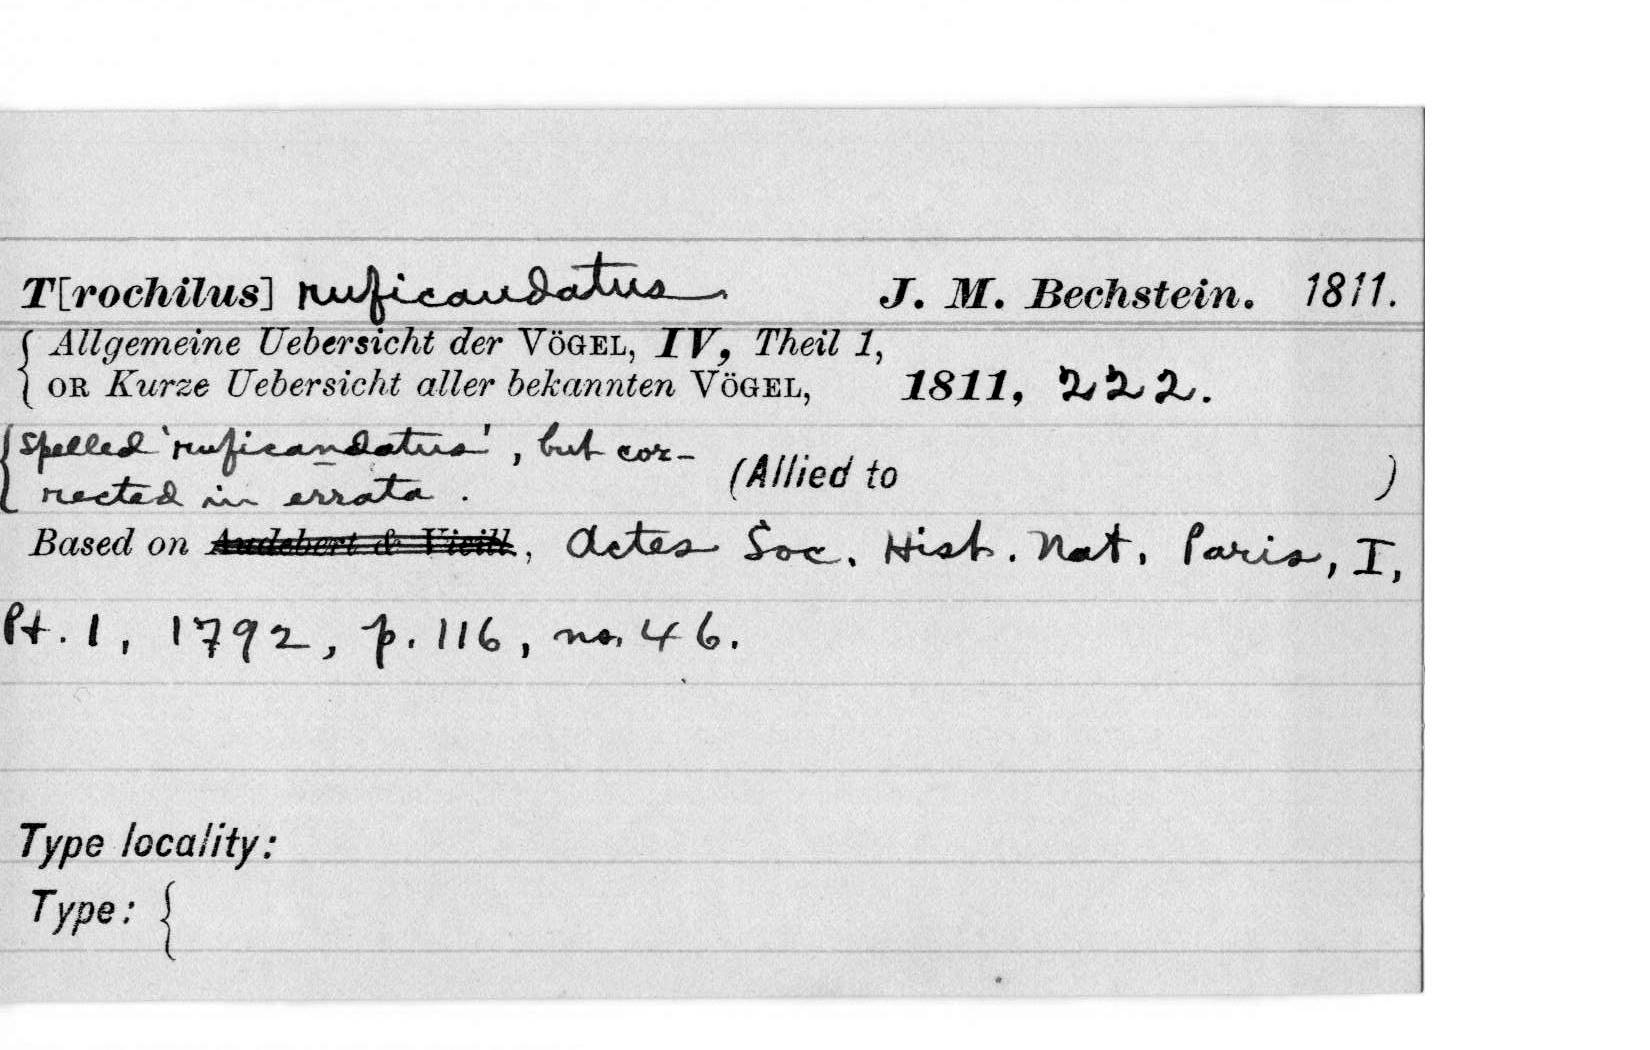 T[rochilus] ruficaudatus. J. M. Bechstein. 1811.
Allgemeine Uebersicht der VÖGEL, IV, Theil 1,
OR Kurze Uebersicht aller bekannten VÖGEL, 1811, 222.
Spelled 'ruficandatus', but cor-
rected in errata. (Allied to )
Based on Audebert & Vieill., Actes Soc. Hist. Nat. Paris, I,
Pt. 1, 1792, p. 116, no. 46.
Type locality:
Type: {